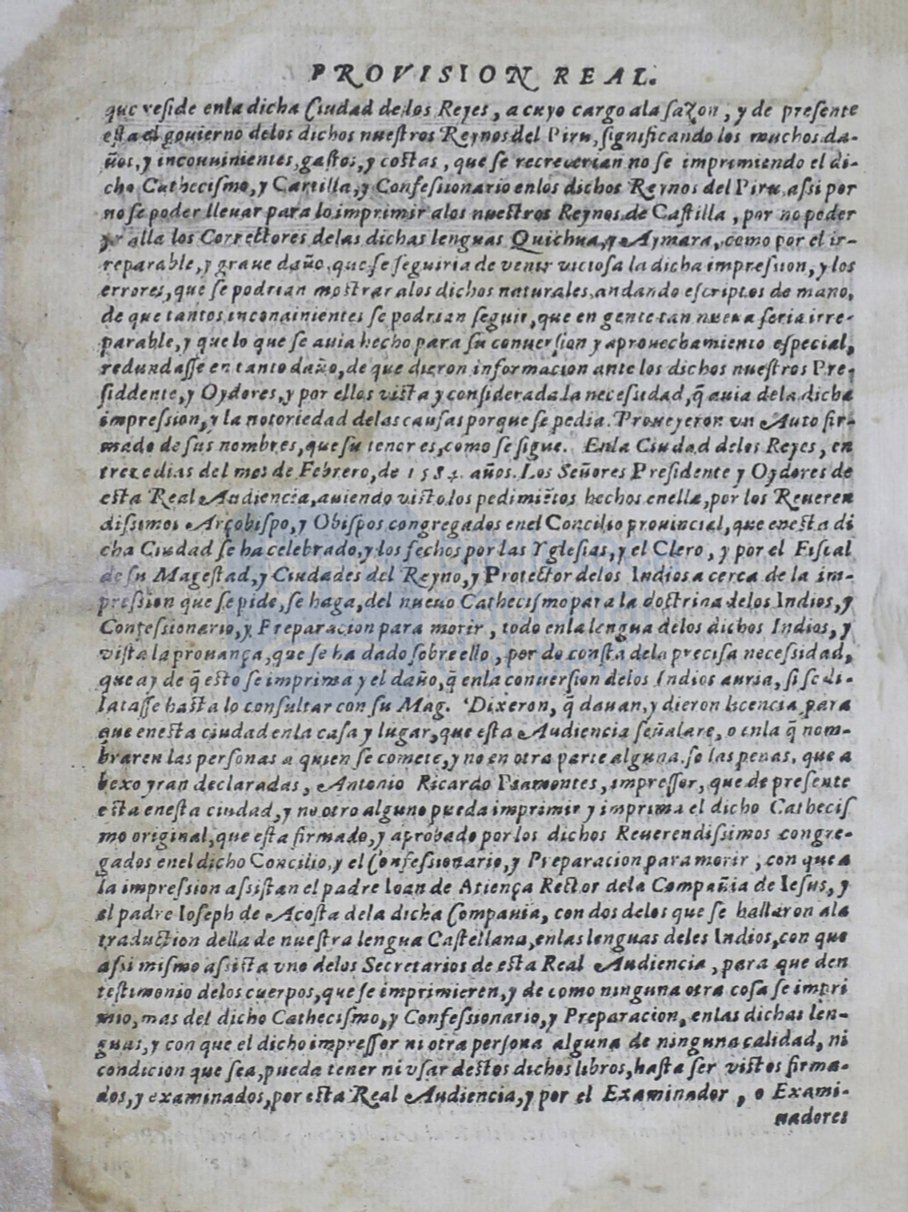 PROVISION REAL.
que reside enla dicha Ciudad de los Reyes, a cuyo cargo ala sazon, y de presente
esta el gouierno delos dichos nuestros Reynos del Piru, significando los muchos da-
ños, y inconuinientes, gastos, y costas, que se recrecerian no se imprimiendo el di-
cho Cathecismo, y Cartilla, y Confessionario enlos dichos Reynos del Piru, assi por
no se poder lleuar para lo imprimir alos nuestros Reynos de Castilla, por no poder
yr alla los Correctores delas dichas lenguas Quichua, y Aymara, como por el ir-
reparable, y graue daño, que se seguiria de venir viciosa la dicha impression, y los
errores, que se podrian mostrar alos dichos naturales, andando escriptos de mano,
de que tantos inconuinientes se podrian seguir, que en gente tan nueua seria irre-
parable, y que lo que se auia hecho para su conuersion y aprouechamiento especial,
redundasse en tanto daño, de que dieron informacion ante los dichos nuestros Pre-
siddente, y Oydores, y por ellos vista y considerada la necesidad, q̃ auia dela dicha
impression, y la notoriedad delas causas porque se pedia. Proueyeron vn Auto fir-
mado de sus nombres, que su tenor es, como se sigue. Enla Ciudad delos Reyes, en
treze dias del mes de Febrero, de 1584. años. Los Señores Presidente y Oydores de
esta Real Audiencia, auiendo visto los pedimiẽtos hechos enella, por los Reueren
dissimos Arçobispo, y Obispos congregados enel Concilio prouincial, que enesta di
cha Ciudad se ha celebrado, y los fechos por las Yglesias, y el Clero, y por el Fiscal
de su Magestad, y Ciudades del Reyno, y Protector delos Indios a cerca de la im-
pression que se pide, se haga, del nueuo Cathecismo para la doctrina delos Indios, y
Confessionario, y Preparacion para morir, todo enla lengua delos dichos Indios, y
vista la prouança, que se ha dado sobre ello, por do consta dela precisa necessidad,
que ay de q̃ esto se imprima y el daño, q̃ enla conuersion delos Indios auria, si se di-
latasse hasta lo consultar con su Mag. Dixeron, q̃ dauan, y dieron licencia para
que enesta ciudad enla casa y lugar, que esta Audiencia señalare, o enla q̃ nom-
braren las personas a quien se comete, y no en otra parte alguna. so las penas, que a
bexo yran declaradas, Antonio Ricardo Piamontes, impressor, que de presente
esta enesta ciudad, y no otro alguno pueda imprimir y imprima el dicho Cathecis
mo original, que esta firmado, y aprobado por los dichos Reuerendissimos congre-
gados enel dicho Concilio, y el Confessionario, y Preparacion para morir, con que a
la impression assistan el padre Ioan de Atiença Rector dela Compañia de Iesus, y
el padre Ioseph de Acosta dela dicha Compania, con dos delos que se hallaron ala
traduction della de nuestra lengua Castellana, enlas lenguas delos Indios, con que
assi mismo assista vno delos Secretarios de esta Real Audiencia, para que den
testimonio delos cuerpos, que se imprimieren, y de como ninguna otra cosa se impri
mio, mas del dicho Cathecismo, y Confessionario, y Preparacion, enlas dichas len-
guas, y con que el dicho impressor ni otra persona alguna de ninguna calidad, ni
condicion que sea, pueda tener ni vsar destos dichos libros, hasta ser vistos firma-
dos, y examinados, por esta Real Audiencia, y por el Examinador, o Exami-
nadores